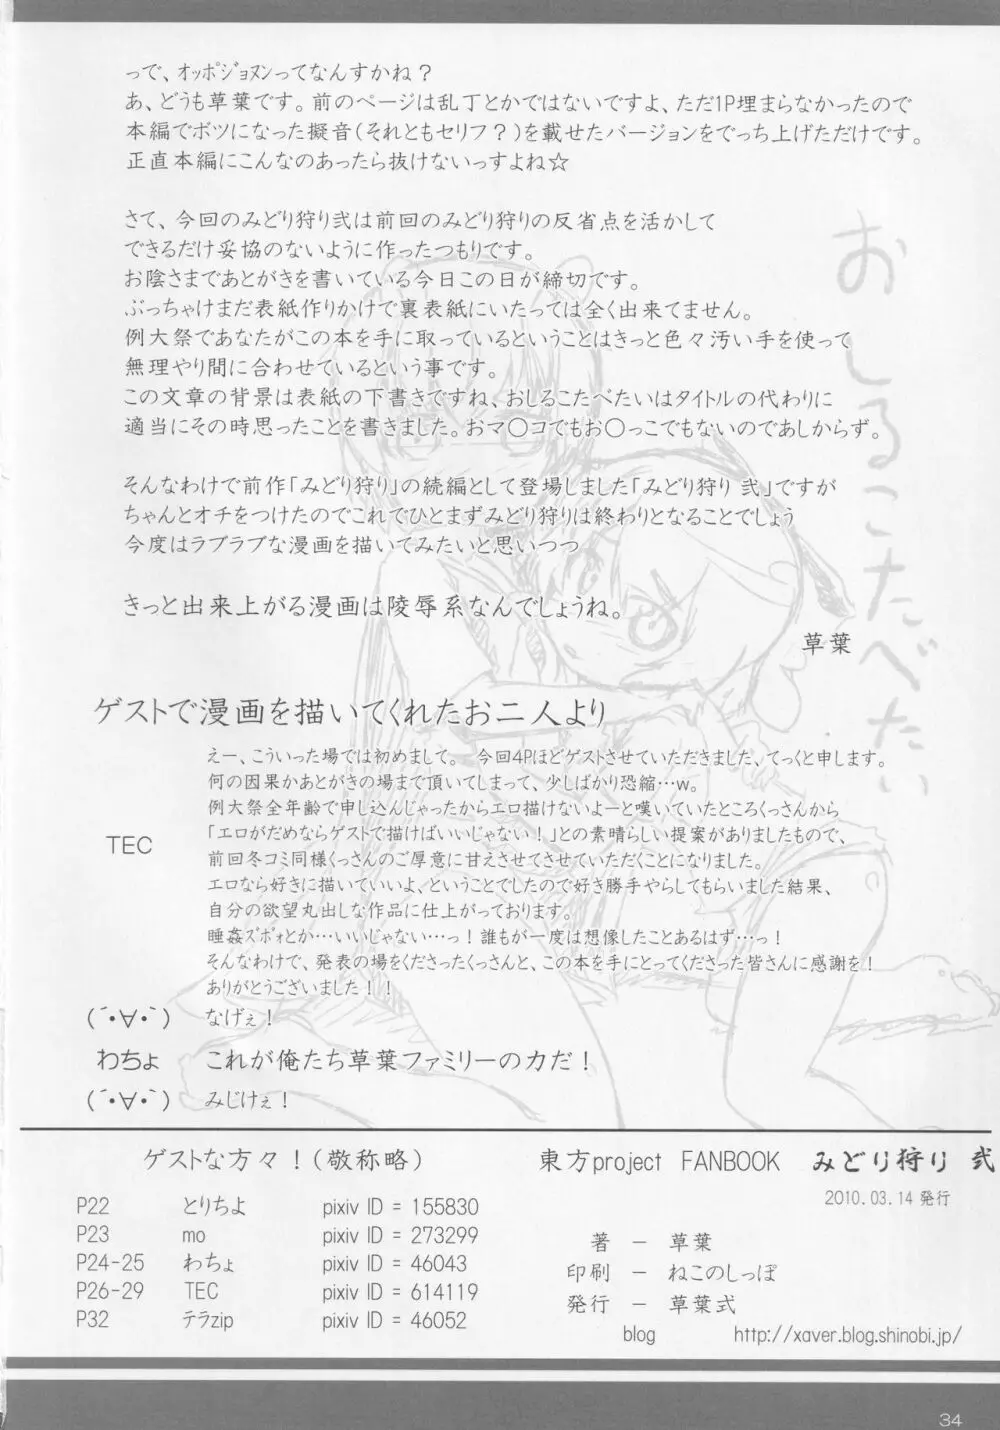 って、オッポジョヌンってなんすかね？
あ、どうも草葉です。前のページは乱丁とかではないですよ、ただ1P埋まらなかったので
本編でボツになった擬音(それともセリフ？)を載せたバージョンをでっち上げただけです。
正直本編にこんなのあったら抜けないっすよね☆
さて、今回のみどり狩り弐は前回のみどり狩りの反省点を活かして
できるだけ妥協のないように作ったつもりです。
お陰さまであとがきを書いている今日この日が締切です。
ぶっちゃけまだ表紙作りかけで裏表紙にいたっては全く出来てません。
例大祭であなたがこの本を手に取っているということはきっと色々汚い手を使って
無理やり間に合わせているという事です。
この文章の背景は表紙の下書きですね、おしるこたべたいはタイトルの代わりに
適当にその時思ったことを書きました。おマ〇コでもお〇っこでもないのであしからず。
そんなわけで前作「みどり狩り」の続編として登場しました「みどり狩り 弐」ですが
ちゃんとオチをつけたのでこれでひとまずみどり狩りは終わりとなることでしょう
今度はラブラブな漫画を描いてみたいと思いつつ
きっと出来上がる漫画は陵辱系なんでしょうね。
草葉
おしるこたべたい
ゲストで漫画を描いてくれたお二人より
TEC
えー、こういった場では初めまして。 今回4Pほどゲストさせていただきました、てっくと申します。
何の因果かあとがきの場まで頂いてしまって、少しばかり恐縮…w。
例大祭全年齢で申し込んじゃったからエロ描けないよーと嘆いていたところくっさんから
「エロがだめならゲストで描けばいいじゃない！」との素晴らしい提案がありましたもので、
前回冬コミ同様くっさんのご厚意に甘えさせてさせていただくことになりました。
エロなら好きに描いていいよ、ということでしたので好き勝手やらしてもらいました結果、
自分の欲望丸出しな作品に仕上がっております。
睡姦ズボォとか…いいじゃない…っ！誰もが一度は想像したことあるはず…っ！
そんなわけで、発表の場をくださったくっさんと、この本を手にとってくださった皆さんに感謝を！
ありがとうございました！！
(´･∀･`) なげぇ！
わちょ これが俺たち草葉ファミリーの力だ！
(´･∀･`) みじけぇ！
ゲストな方々！(敬称略)
P22 とりちよ pixiv ID = 155830
P23 mo pixiv ID = 273299
P24-25 わちょ pixiv ID = 46043
P26-29 TEC pixiv ID = 614119
P32 テラzip pixiv ID = 46052
東方project FANBOOK みどり狩り 弐
2010.03.14発行
著 － 草葉
印刷 － ねこのしっぽ
発行 － 草葉式
blog http://xaver.blog.shinobi.jp/
34